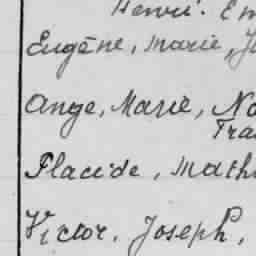 Henri. Em
Eugène, Marie, J
Ange, Marie, No
Fra
Placide, Math
Victor, Joseph,